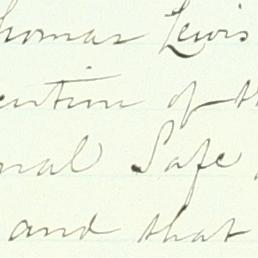 homas Lewis
ention of th
nal Safe
and that